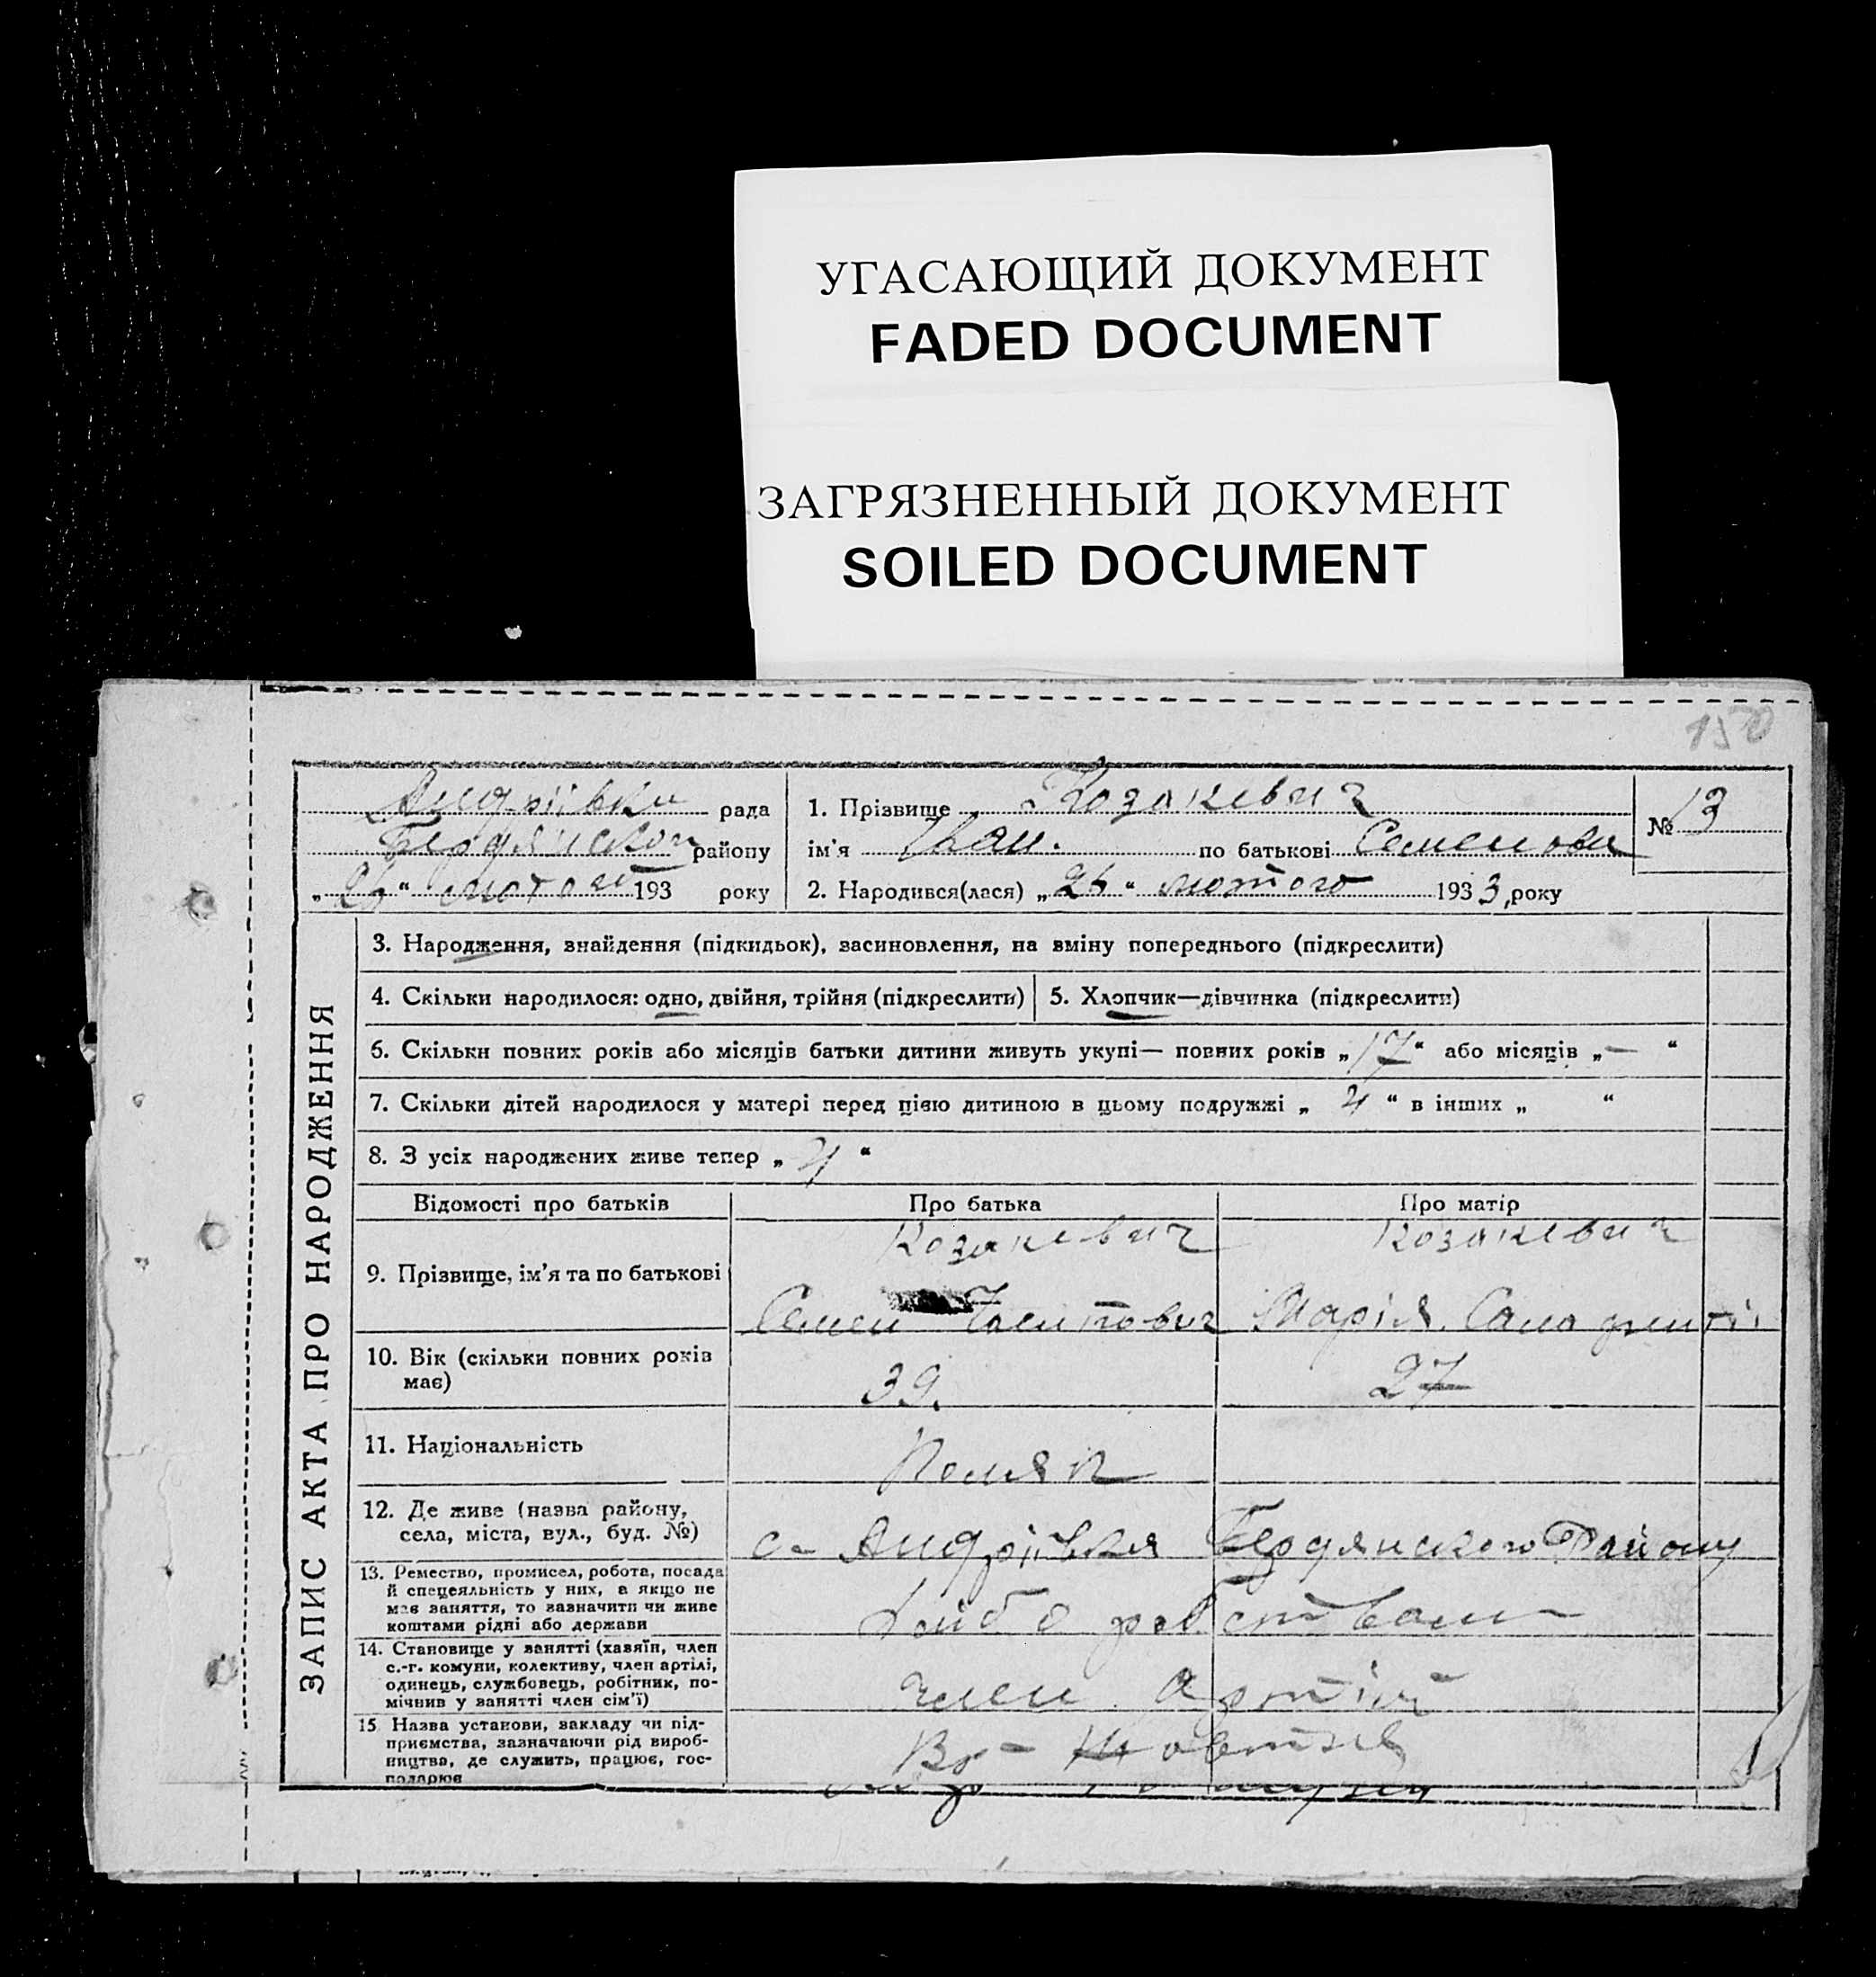 УГАСАЮЩИЙ ДОКУМЕНТ
FADED DOCUMENT
ЗАГРЯЗНЕННЫЙ ДОКУМЕНТ
SOILED DOCUMENT
150
Андріївки рада
районy
„26“ лютого 193 року
1. Прізвище Козакевич
ім'я Іван. по батькові Семенови
2. Народився(лася) „26“ лютого 1933, року
№ 13
ЗАПИС АКТА ПРО НАРОДЖЕННЯ
3. Народження, знайдення (підкидьок), засиновлення, на вміну попереднього (підкреслити)
4. Скільки народилося: одно, двійня, трійня (підкреслити)
5. Хлопчик—дівчинка (підкреслити)
6. Скільки повних років або місяців батьки дитини живуть укупі— повних років „17“ або місяців „—“
7. Скільки дітей народилося у матері перед цією дитиною в цьому подружжі „4“ в інших „ “
8. З усіх народжених живе тепер „4“
Відомості про батьків Про батька Про матір
9. Прізвище, ім'я та по батькові
Козакевич Козакевич
Семен Марія
10. Вік (скільки повних років
має)
39. 27
11. Національність
Поляк
12. Де живе (назва району,
села, міста, вул., буд. №)
с- Андріївка Бердянского Району
13. Ремество, промисел, робота, посада
й спецеяльність у них, а якщо не
має заняття, то зазначити чи живе
коштами рідні або держави
14. Становище у занятті (хазяїн, член
с.-г. комуни, колективу, член артілі,
одинець, службовець, робітник, по-
мічнив у занятті член сім'ї)
член Артілі
15 Назва установи, закладу чи під-
приємства, зазначаючи рід вироб-
ництва, де служить, працює, гос-
подарює